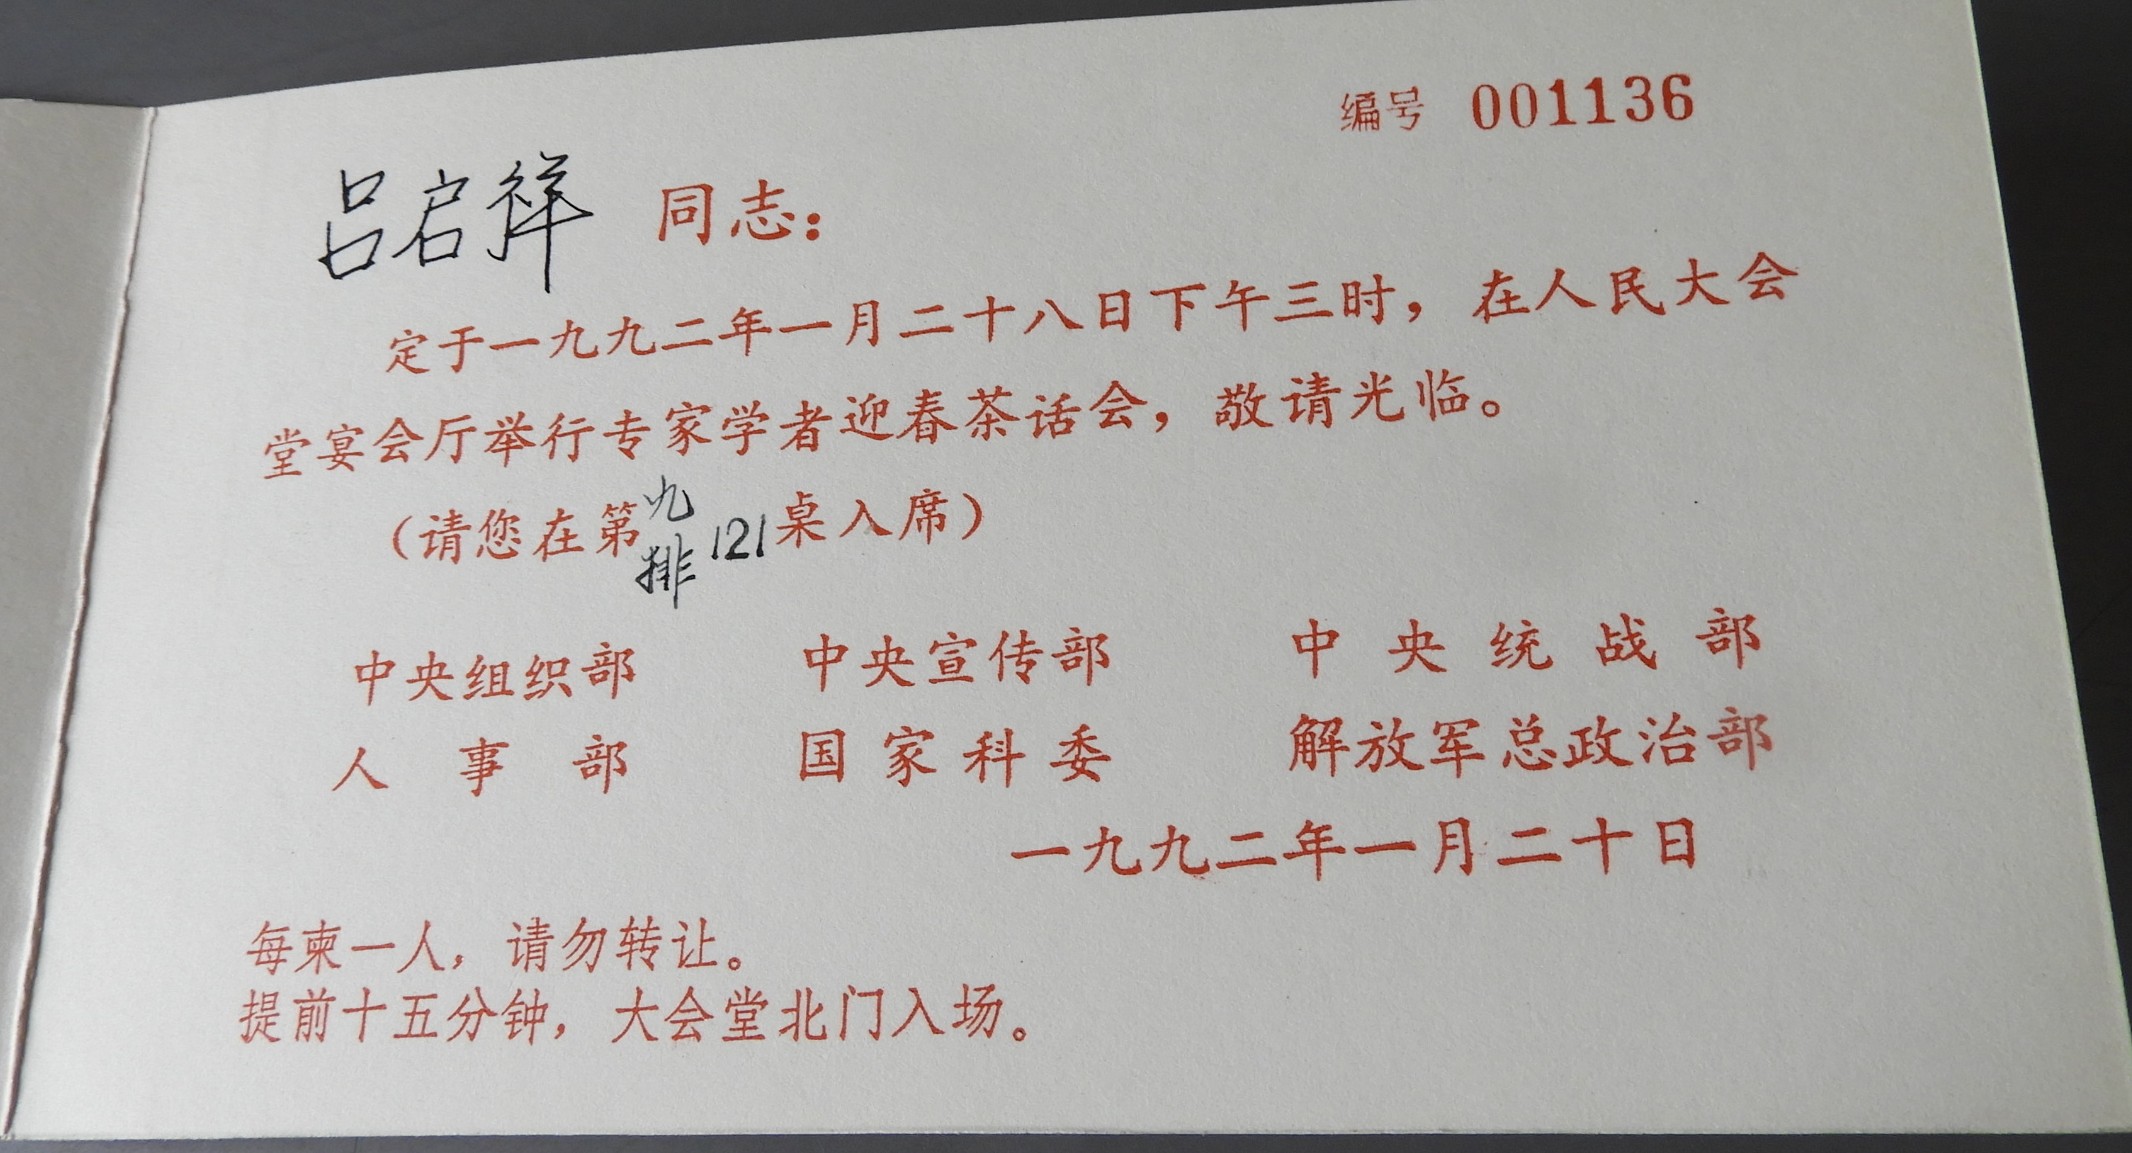 编号 001136
吕启祥 同志：
定于一九九二年一月二十八日下午三时，在人民大会
堂宴会厅举行专家学者迎春茶话会，敬请光临。
（请您在第九排121桌入席）
中央组织部 中央宣传部 中央统战部
人事部 国家科委 解放军总政治部
一九九二年一月二十日
每柬一人，请勿转让。
提前十五分钟，大会堂北门入场。